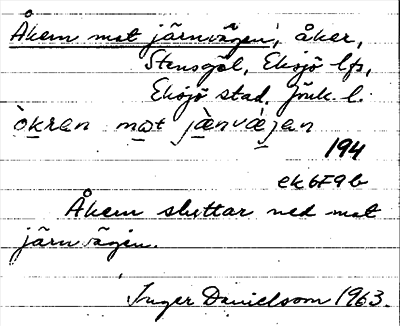 Åkern mot järnvägen, åker,
Stensgöl, Eksjö lfs,
Eksjö stad, Jönk. l.
òkran mot jànvæjan
194
ek 6F9b
Åkern sluttar ned mot
järnvägen.
Inger Danielsson 1963.